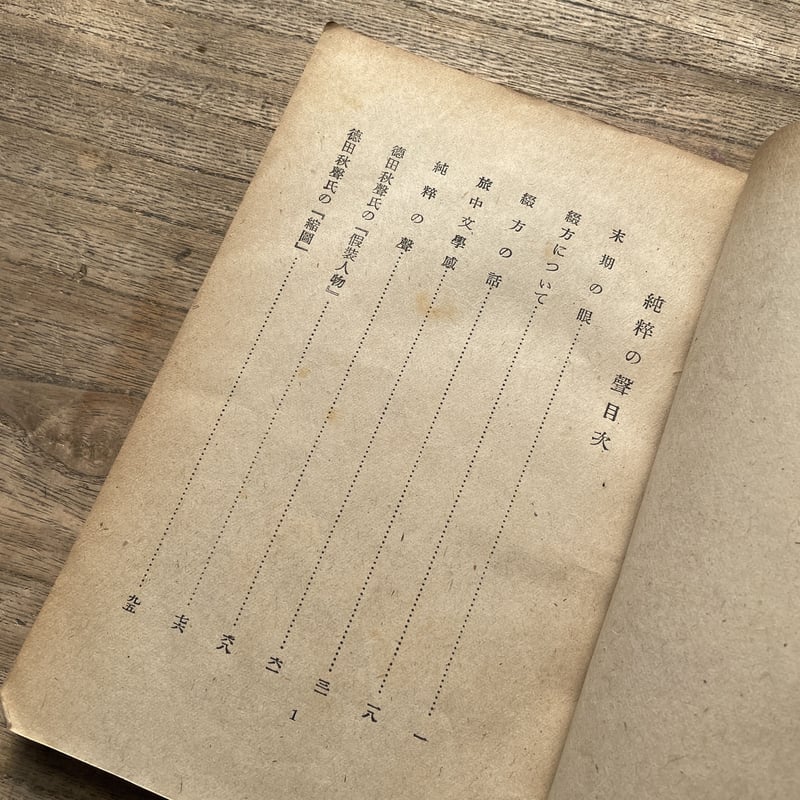 純粋の聲目次
末期の眼……一
綴方について……一八
綴方の話……三一
旅中文學感……六一
純粋の聲……六八
德田秋聲氏の『假裝人物』……七六
德田秋聲氏の『縮圖』……九五
1